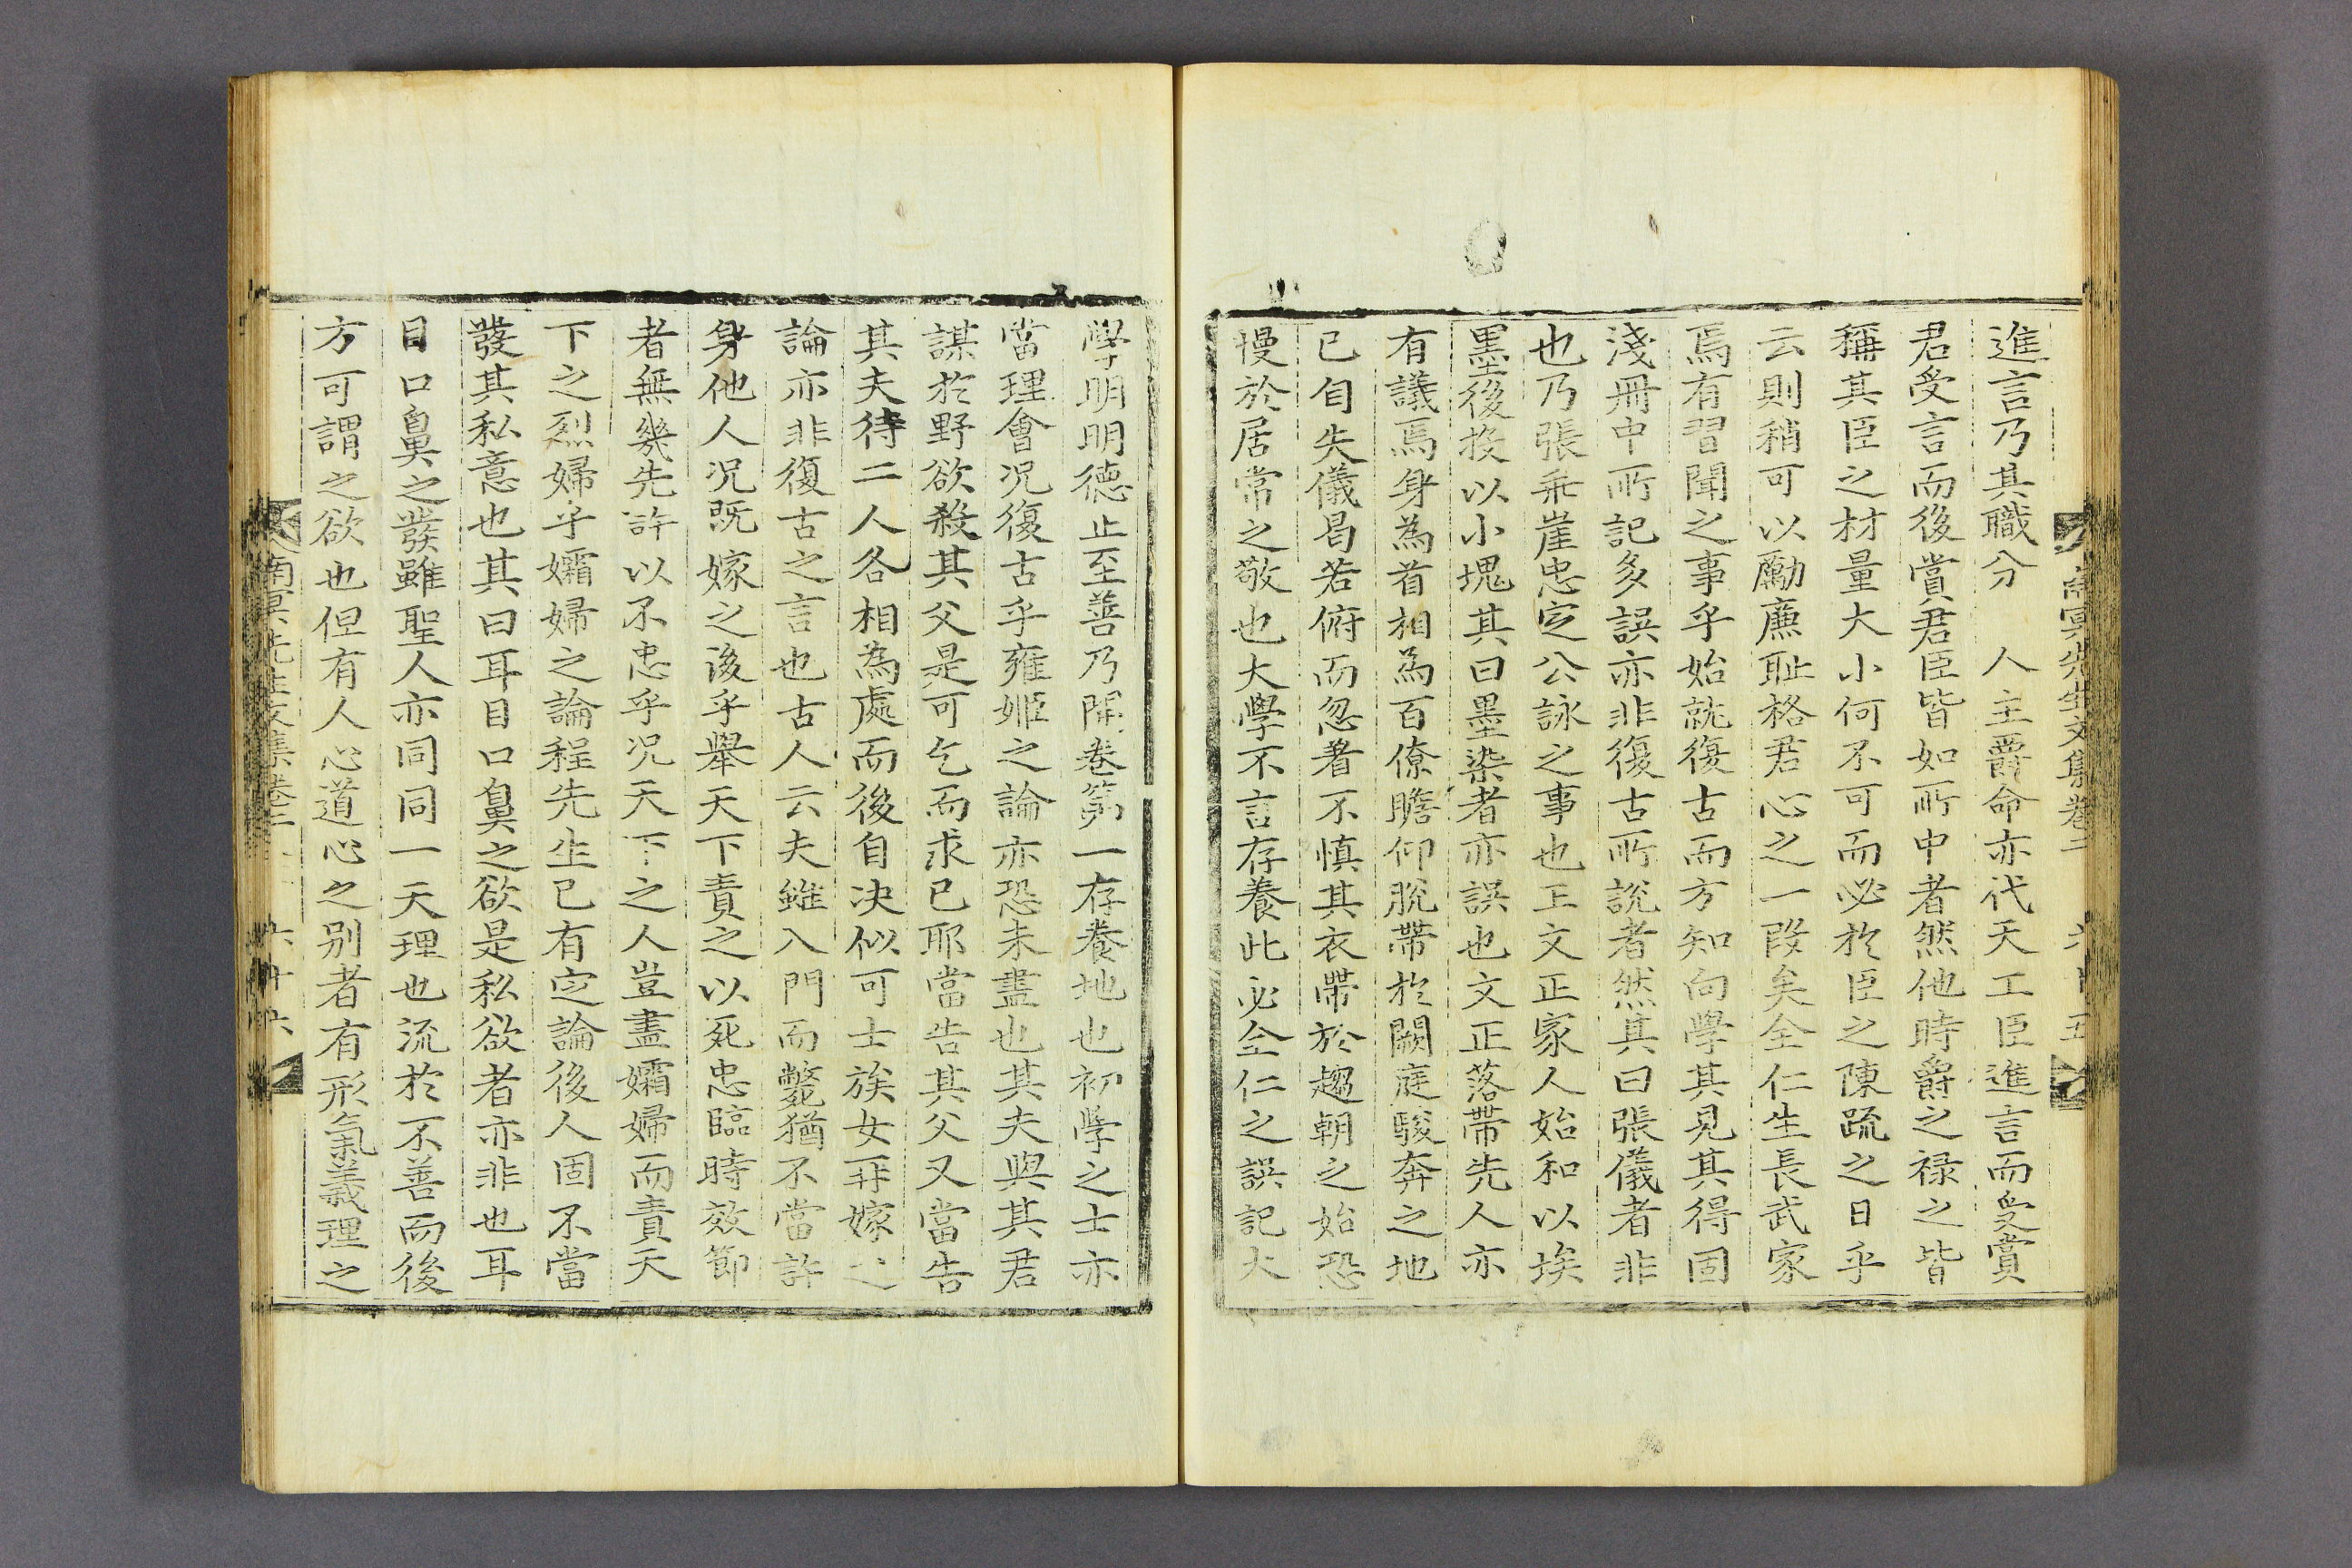 進言乃其職分　人主爵命亦代天工臣進言而受賞
君受言而後賞君臣皆如所中者然他時爵之禄之皆
稱其臣之材量大小何不可而必於臣之陳䟽之日乎
云則稍可以勵廉耻格君心之一段矣全仁生長武家
焉有習聞之事乎始就復古而方知向學其見其得固
淺冊中所記多誤亦非復古所說者然其曰張儀者非
也乃張乖崖忠定公詠之事也王文正家人始和以埃
墨後投以小塊其曰墨染者亦誤也文正落帶先人亦
有議焉身為首相為百僚瞻仰脫帶於闕庭駿奔之地
已自失儀曷若俯而忽着不慎其衣帶於趨朝之始恐
慢於居常之敬也大學不言存養此必仝仁之誤記大
學明明德止至善乃開卷第一存養地也初學之士亦
當理會况復古乎雍姬之論亦恐未盡也其夫與其君
謀於野欲殺其父是可乞而求已耶當告其父又當告
其夫待二人各相為處而後自决似可士族女再嫁之
論亦非復古之言也古人云夫雖入門而斃猶不當許
身他人况既嫁之後乎舉天下責之以死忠臨時效節
者無幾先許以不忠乎况天下之人豈盡孀婦而責天
下之烈婦乎孀婦之論程先生已有定論後人固不當
發其私意也其曰耳目口鼻之欲是私欲者亦非也耳
目口鼻之發雖聖人亦同同一天理也流於不善而後
方可謂之欲也但有人心道心之别者有形氣義理之
南冥先生文集卷二　六十六